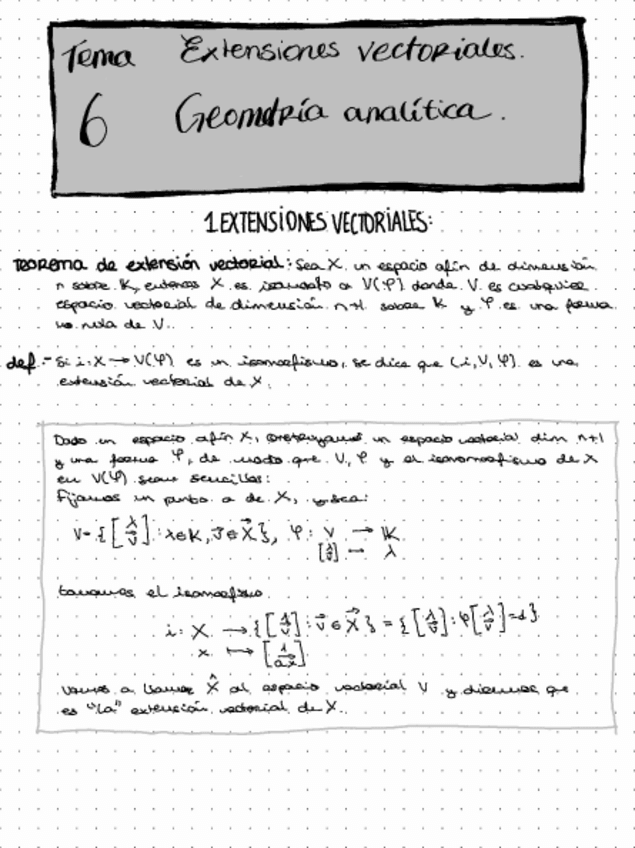 Tema Extensiones vectoriales.
6 Geometría analítica.
1.EXTENSIONES VECTORIALES:
TEOREMA de extensión vectorial: Sea X un espacio afín de dimensión
n sobre K, entonces X es isomorfo a V(φ) donde V es cualquier
espacio vectorial de dimensión n+1 sobre K y φ es una forma
no nula de V.
def.- Si i: X → V(φ) es un isomorfismo, se dice que (i, V, φ) es una
extensión vectorial de X.
Dado un espacio afín X, construyamos un espacio vectorial dim n+1
y una forma φ, de modo que V, φ y el isomorfismo de X
en V(φ) sean sencillos:
Fijamos un punto a de X, y sea:
V = {[λ / v⃗] : λ ∈ K, v⃗ ∈ X⃗}, φ: V → K
[λ / v⃗] → λ
tomamos el isomorfismo
i: X → {[1 / v⃗] : v⃗ ∈ X⃗} = {[λ / v⃗] : φ[λ / v⃗] = 1}
x ↦ [1 / ax⃗]
vamos a llamar X̂ al espacio vectorial V y diremos que
es "la" extensión vectorial de X.